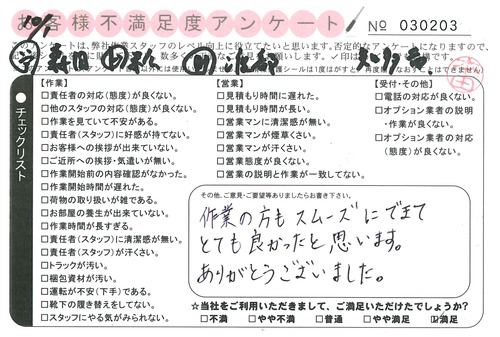 お客様不満足度アンケート
№ 030203
チェックリスト
【作業】
□責任者の対応(態度)が良くない。
□他のスタッフの対応(態度)が良くない。
□作業を見ていて不安がある。
□責任者(スタッフ)に好感が持てない。
□お客様への挨拶が出来ていない。
□ご近所への挨拶・気遣いが無い。
□作業開始前の内容確認がなかった。
□作業開始時間が遅れた。
□荷物の取り扱いが雑である。
□お部屋の養生が出来ていない。
□作業時間が長すぎる。
□責任者(スタッフ)に清潔感が無い。
□責任者(スタッフ)が汗くさい。
□トラックが汚い。
□梱包資材が汚い。
□運転が不安(下手)である。
□靴下の履き替えをしてない。
□スタッフにやる気がみられない。
【営業】
□見積もり時間に遅れた。
□見積もり時間が長い。
□営業マンに清潔感が無い。
□営業マンが煙草くさい。
□営業マンが汗くさい。
□営業態度が良くない。
□営業の説明と作業が一致してない。
【受付・その他】
□電話の対応が良くない。
□オプション業者の説明
・作業が良くない。
□オプション業者の対応
(態度)が良くない。
その他、ご意見・ご要望等ありましたらお書き下さい。
作業の方もスムーズにできて
とても良かったと思います。
ありがとうございました。
☆当社をご利用いただきまして、ご満足いただけたでしょうか?
□不満 □やや不満 □普通 □やや満足 ☑満足